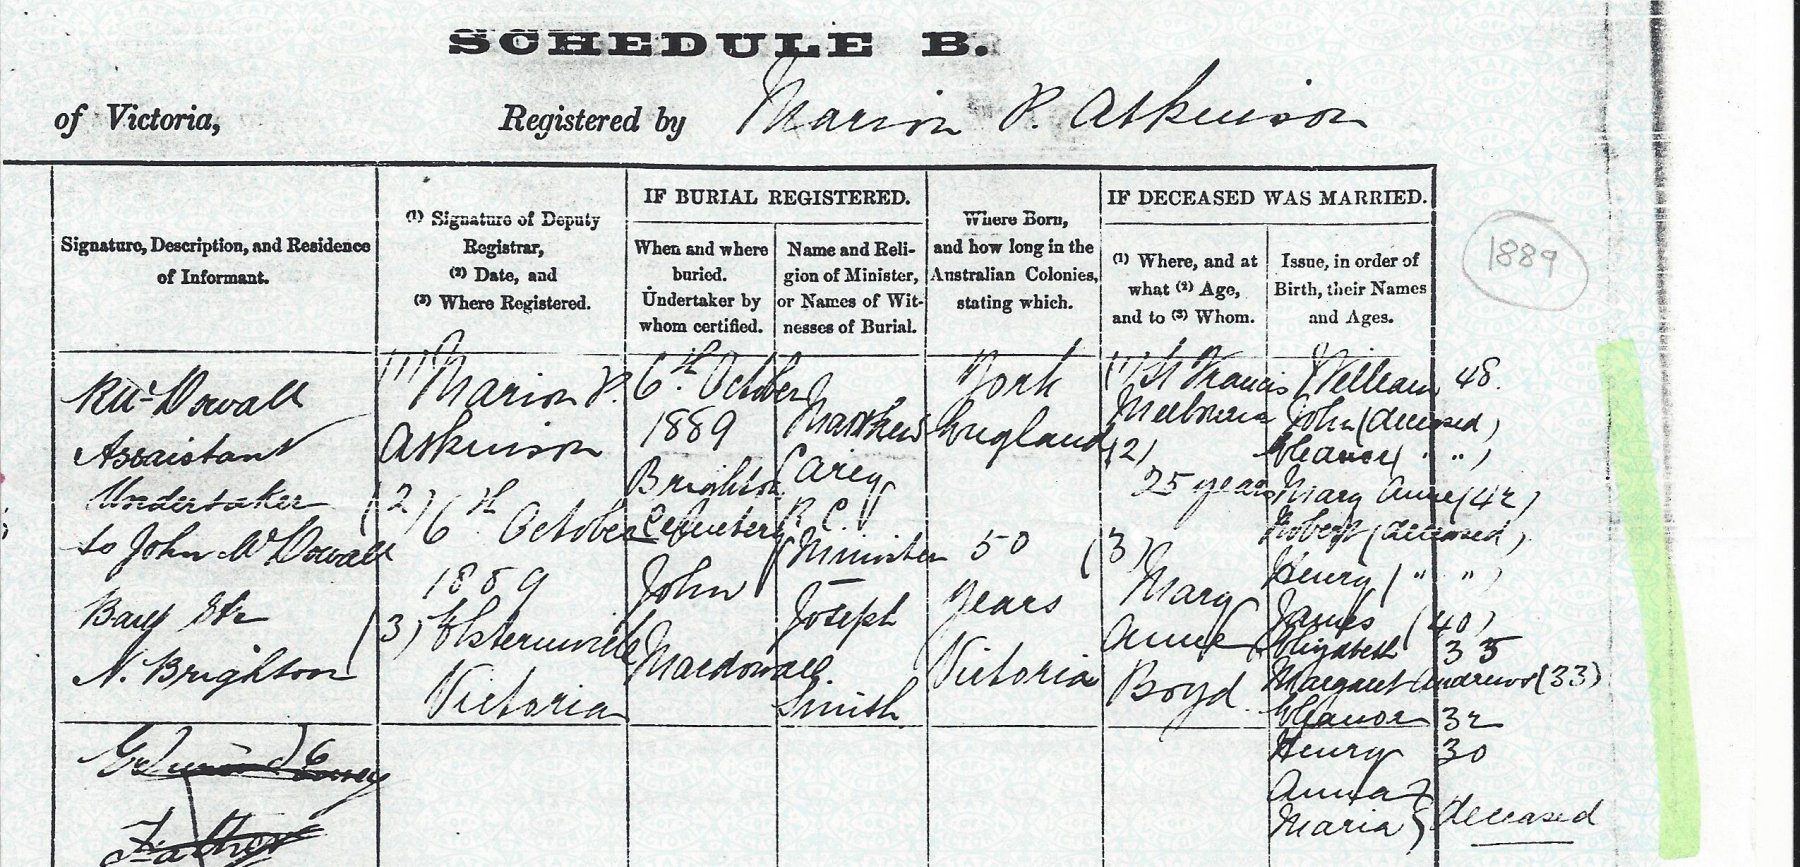 SCHEDULE B.
of Victoria, Registered by Marion P. Atkinson
Signature, Description, and Residence
of Informant.
(1) Signature of Deputy
Registrar,
(2) Date, and
(3) Where Registered.
IF BURIAL REGISTERED.
When and where
buried.
Undertaker by
whom certified.
Name and Reli-
gion of Minister,
or Names of Wit-
nesses of Burial.
Where Born,
and how long in the
Australian Colonies,
stating which.
IF DECEASED WAS MARRIED.
(1) Where, and at
what (2) Age,
and to (3) Whom.
Issue, in order of
Birth, their Names
and Ages.
1889
Dowall
Assistant
Undertaker
to John McDowall
Bay Str
N. Brighton
(1) Marion P.
Atkinson
(2) 6th October
1889
(3) Elsternwick
Victoria
6th October
1889
Brighton
Cemetery
John
Macdowall.
Matthew
Carey
R. C.
Minister
Joseph
Smith
York
England
50
years
Victoria
(1) St Francis
Melbourne
(2)
25 years
(3)
Mary
Anne
Boyd
William 48.
John (deceased)
Eleanor ( " " )
Mary Anne (42)
Robert (deceased)
Henry ( " " )
James (40)
Elizabeth 35
Margaret Andrews (33)
Eleanor 32
Henry 30
Anna
Maria } deceased
Father